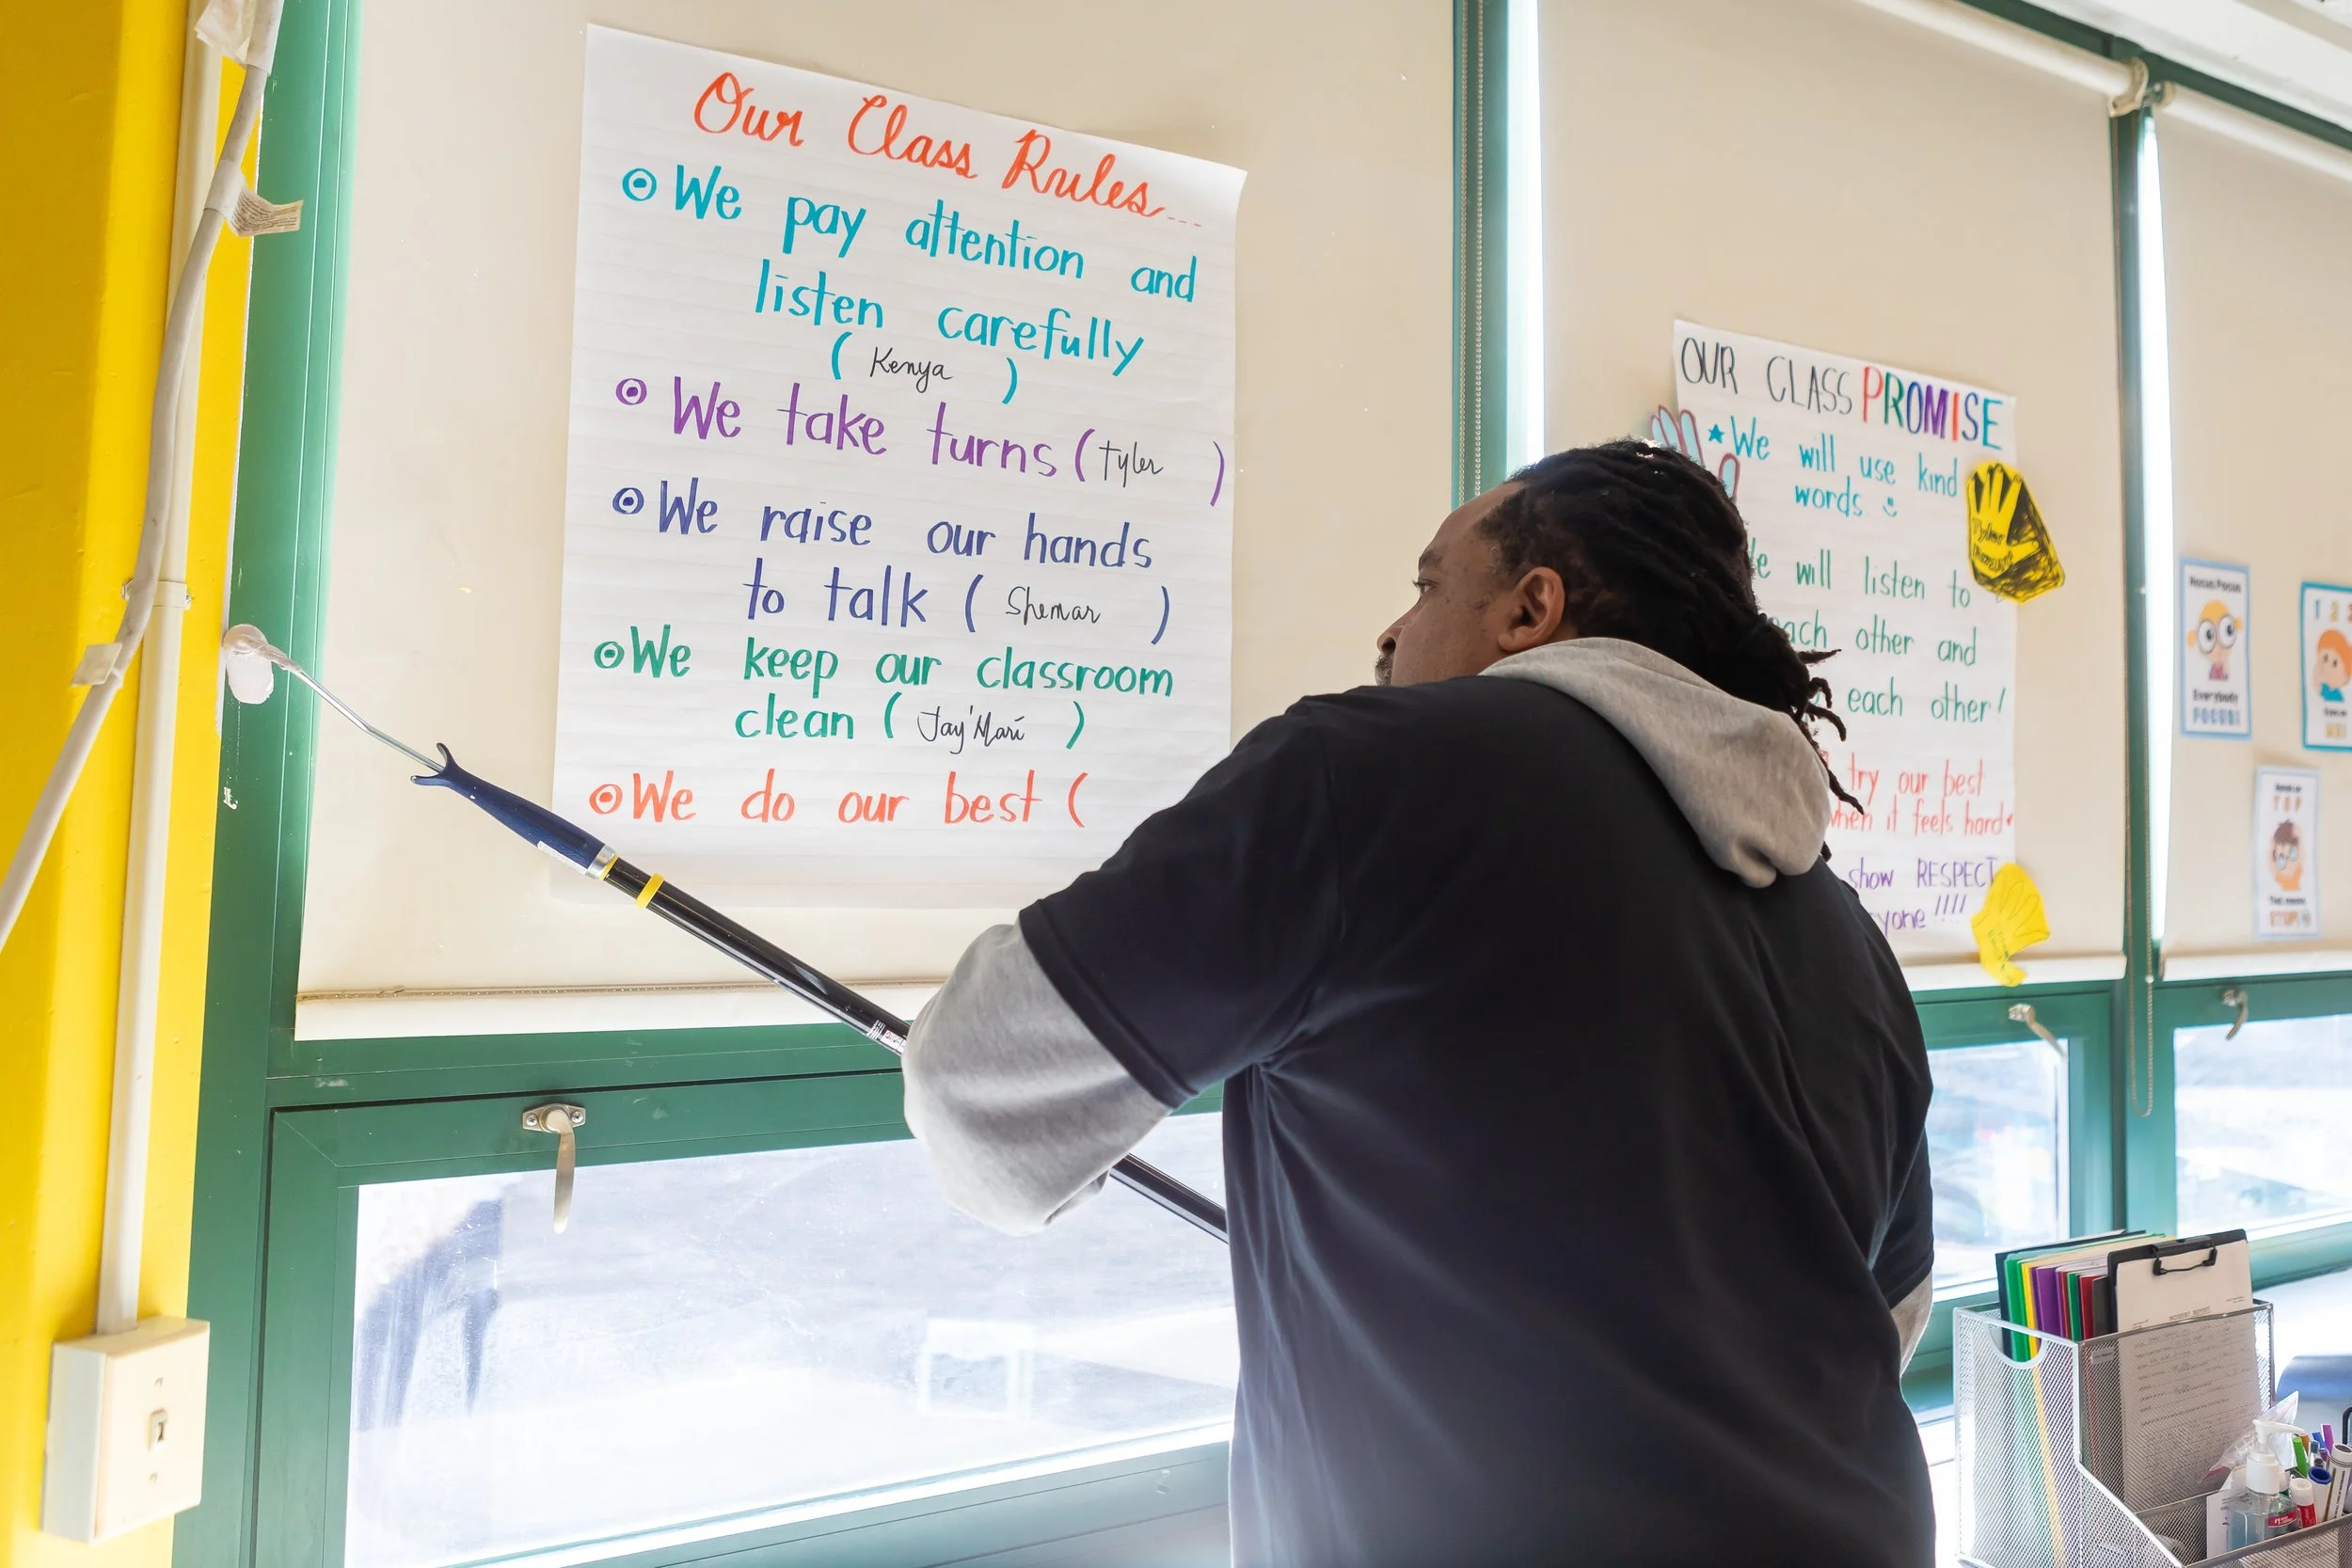 Our Class Rules...
We pay attention and
listen carefully
( Kenya )
We take turns ( Tyler )
We raise our hands
to talk ( Shemar )
We keep our classroom
clean ( Jay'Mari )
We do our best (
OUR CLASS PROMISE
We will use kind
words
will listen to
each other and
each other!
try our best
when it feels hard
show RESPECT
yone !!!!
Tyler
Hocus Pocus
Everybody
FOCUS!
1 2 3
STOP!